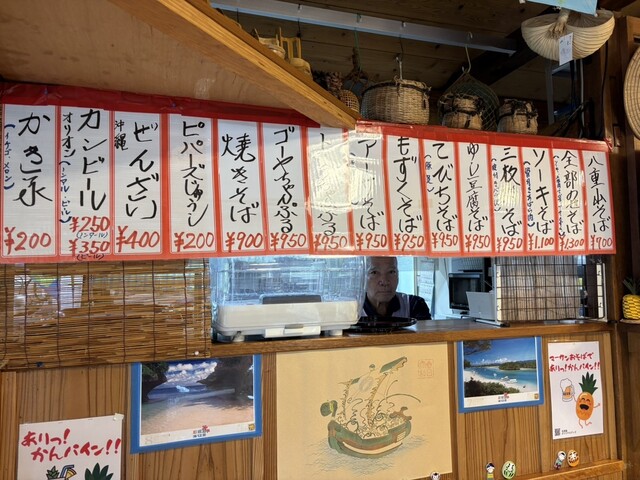 八重山そば
¥900
全部のせそば
¥1.300
ソーキそば
¥1.100
三枚肉そば
¥950
ゆし豆腐そば
¥950
てびちそば
(豚足)
¥950
もずくそば
¥950
アーサそば
¥950
¥950
ゴーヤちゃんぷる
¥950
焼きそば
¥900
ピパーズじゅうし
¥200
沖縄
ぜんざい
¥400
カンビール
オリオン
(ノーマル・ビール)
¥250
(ノンアール)
¥350
(ビール)
かき氷
(イチゴ、メロン)
¥200
ありっ!
かんパイン!!
マークンおそばで
ありっ!かんパイン!!